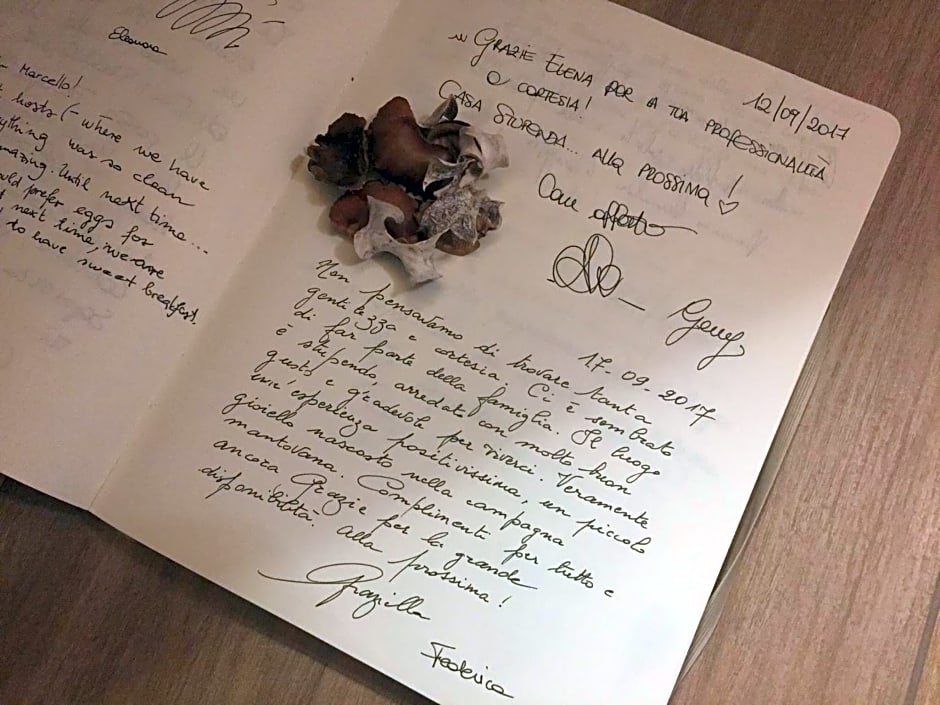 Eleonora
Marcello!
hosts (- where we have
everything was so clean
amazing. Until next time...
would prefer eggs for
next time, we are
to have sweet breakfast.
12/09/2017
GRAZIE ELENA PER LA TUA PROFESSIONALITÀ
E CORTESIA!
CASA STUPENDA... ALLA PROSSIMA! ♡
Con affetto
17-09-2017
Non pensavamo di trovare tanta
gentilezza e cortesia. Ci è sembrato
di far parte della famiglia. Il luogo
è stupendo, arredato con molto buon
gusto e gradevole per viverci. Veramente
un'esperienza positivissima, un piccolo
gioiello nascosto nella campagna
mantovana. Complimenti per tutto e
ancora Grazie per la grande
disponibilità. Alla prossima!
Graziella
Federica